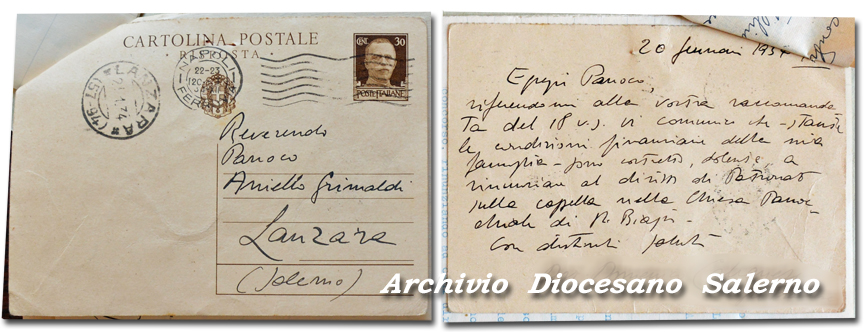 CARTOLINA POSTALE
RISPOSTA
CENT. 30
POSTE ITALIANE
LANZARA
NAPOLI
22-23
FERROVIA
Reverendo
Parroco
Aniello Grimaldi
Lanzara
(Salerno)
20 Gennaio 193
Egregio Parroco,
riferendomi alla Vostra raccomanda
ta del 18 u.s. Vi comunico che - stante
le condizioni finanziarie della mia
famiglia - sono costretto, dolente, a
rinunziare al diritto di Patronato
sulla cappella nella Chiesa Parroc
chiale di S. Biagio -
Con distinti saluti
Archivio Diocesano Salerno